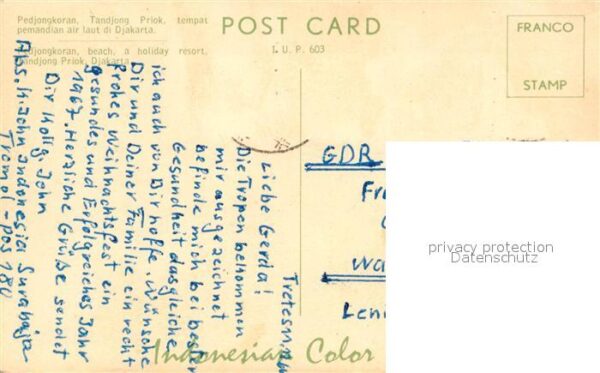 Pedjongkoran, Tandjong Priok, tempat
pemandian air laut di Djakarta.
Pedjongkoran, beach, a holiday resort,
Tandjong Priok, Djakarta.
POST CARD
I. U. P. 603
FRANCO
STAMP
Liebe Gerda!
Die Tropen bekommen
mir ausgezeichnet
befinde mich bei bester
Gesundheit das gleiche
ich auch von Dir hoffe. Wünsche
Dir und Deiner Familie ein recht
frohes Weihnachtsfest ein
gesundes und Erfolgreiches Jahr
1967. Herzliche Grüße sendet
Dir Kollg John
Abs. K. John Indonesia Surabaja
Tromol-pos 180
GDR
Fr
Wa
Leni
privacy protection
Datenschutz
Indonesian Color